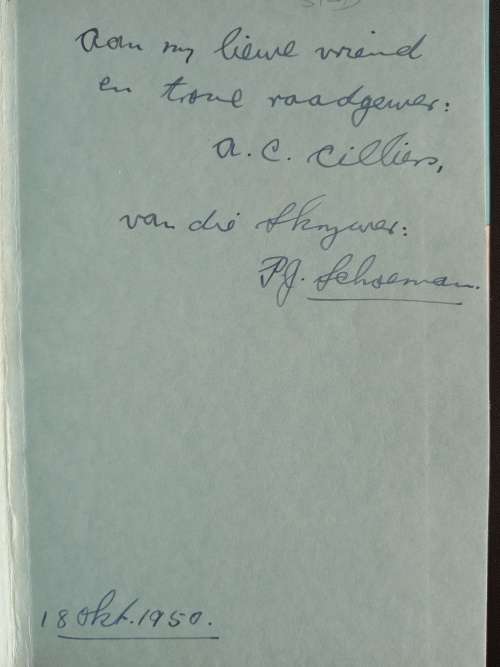 Aan my liewe vriend
en troue raadgewer:
A. C. Cilliers,
van die Skrywer:
P.J. Schoeman.
18 Okt. 1950.